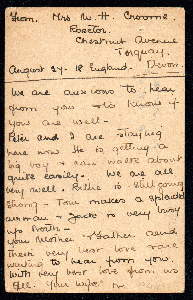 From. Mrs W. H. Croome.
Rosetor.
Chestnut Avenue
Torquay.
August 27 - 18 England. Devon.
We are anxious to hear
from you & to know if
you are well -
Peter and I are staying
here now He is getting a
big boy & can waddle about
quite easily. We are all
very well. Bertie is still going
strong - Tom makes a splendid
airman & Jack is very busy
up North -
your Mother & Father send
there very best love
waiting to hear from you.
with very best love from us
all. Your wife